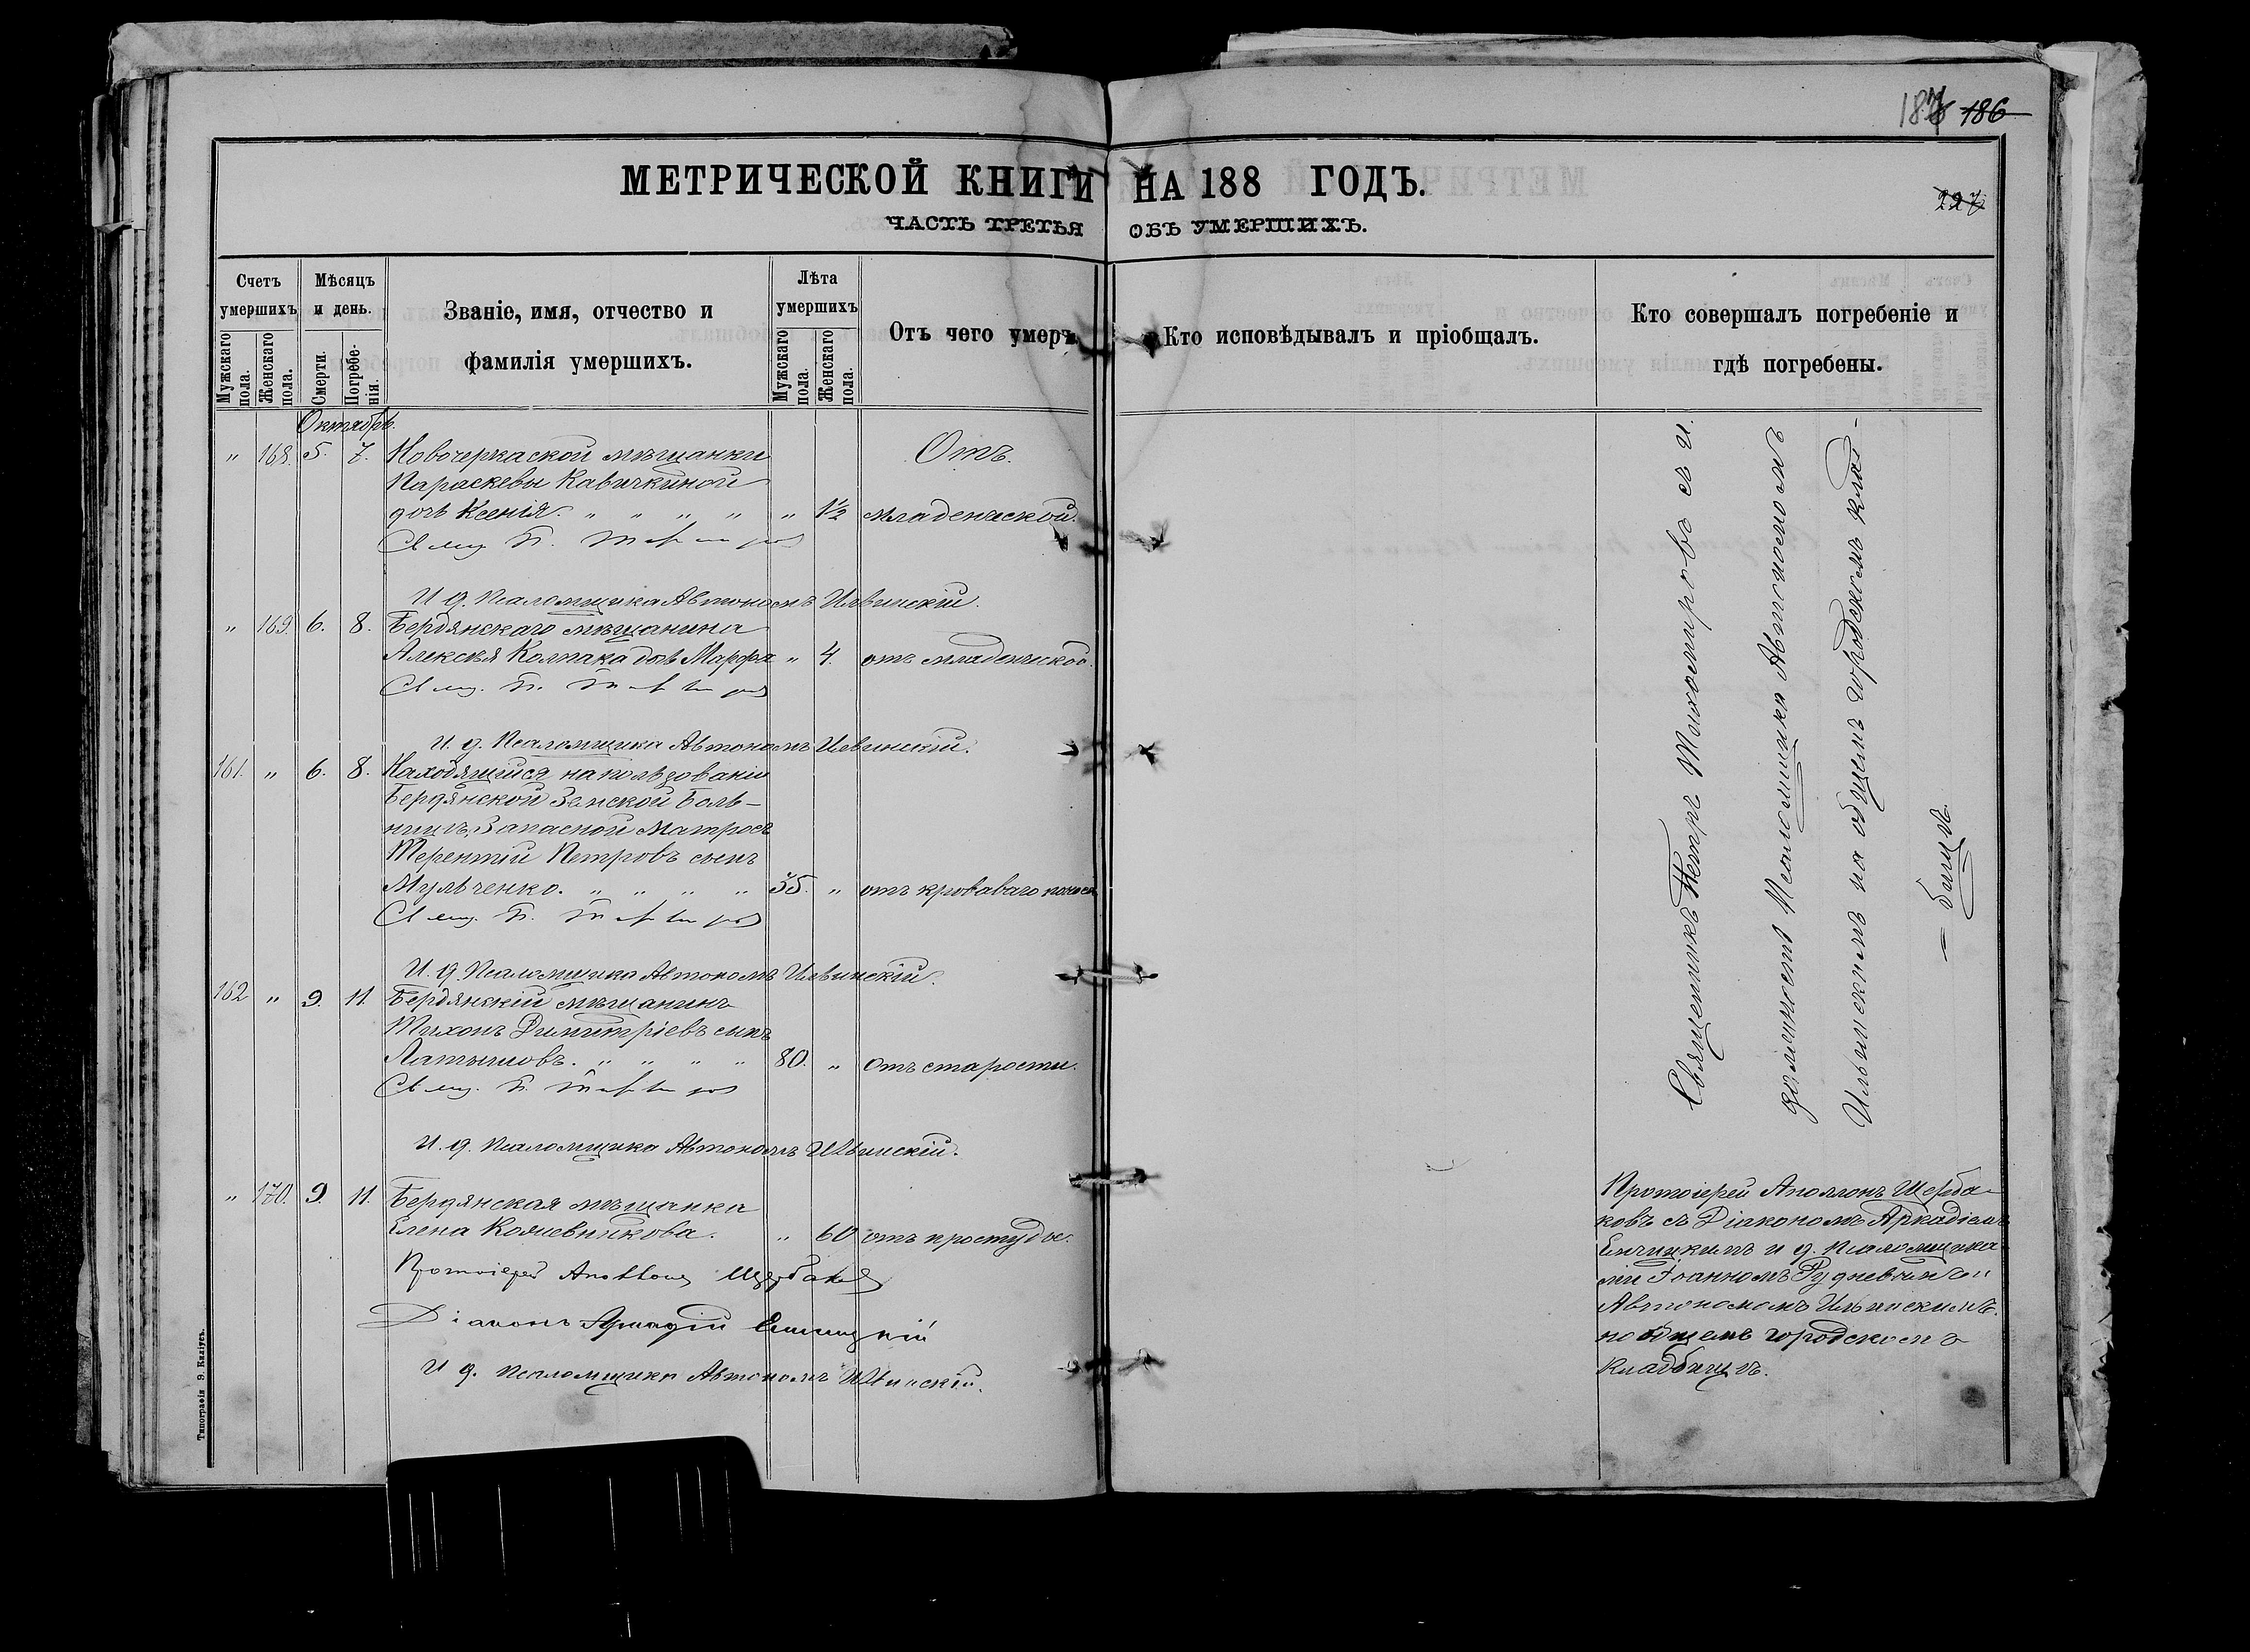 187 186
МЕТРИЧЕСКОЙ КНИГИ НА 188 ГОДЪ.
227
ЧАСТЬ ТРЕТЬЯ ОБЪ УМЕРШИХЪ.
Счетъ умершихъ
Мужскаго пола.
Женскаго пола.
Мѣсяцъ и день.
Смерти.
Погребенія.
Званіе, имя, отчество и
фамилія умершихъ.
Лѣта умершихъ
Мужскаго пола.
Женскаго пола.
Отъ чего умеръ.
Кто исповѣдывалъ и пріобщалъ.
Кто совершалъ погребеніе и
гдѣ погребены.
Октябрь.
" 168. 5. 7. Новочеркаской мѣщанки Отъ
Параскевы Кавичкиной
дочь Ксенія. " " " " " 1½ младенческой.
И. д. Псаломщика Автономъ Ильинскій.
" 169. 6. 8. Бердянскаго мѣщанина
Алексѣя Колпака дочь Марфа " 4. отъ младенческой.
И. д. Псаломщика Автономъ Ильинскій.
161. " 6. 8. Находящійся на пользованіи
Бердянской Земской Боль-
ницѣ, Запасной Матросъ
Терентій Петровъ сынъ
Мульченко. " " " " 35. " отъ кроваваго поноса
И. д. Псаломщика Автономъ Ильинскій.
162 " 9. 11 Бердянскій мѣщанинъ
Тихонъ Димитріевъ сынъ
Латышовъ. " " " " 80. " отъ старости.
И. д. Псаломщика Автономъ Ильинскій.
" 170. 9. 11. Бердянская мѣщанка
Елена " 60 отъ простуды.
Протоіерей Аполлонъ Щербаковъ
Діаконъ Аркадій
И д. Псаломщика Автономъ Ильинскій.
Священникъ Петръ с и.
должность Псаломщика Автономомъ
Ильинскимъ на общемъ городскомъ клад-
— бищѣ.
Протоіерей Аполлонъ Щерба-
ковъ съ Діакономъ Аркадіемъ
и д. Псаломщика-
ми Іоанномъ Рудневымъ и
Автономомъ Ильинскимъ.
на общемъ городскомъ
Кладбищѣ.
Типографія Э. Килiусъ.